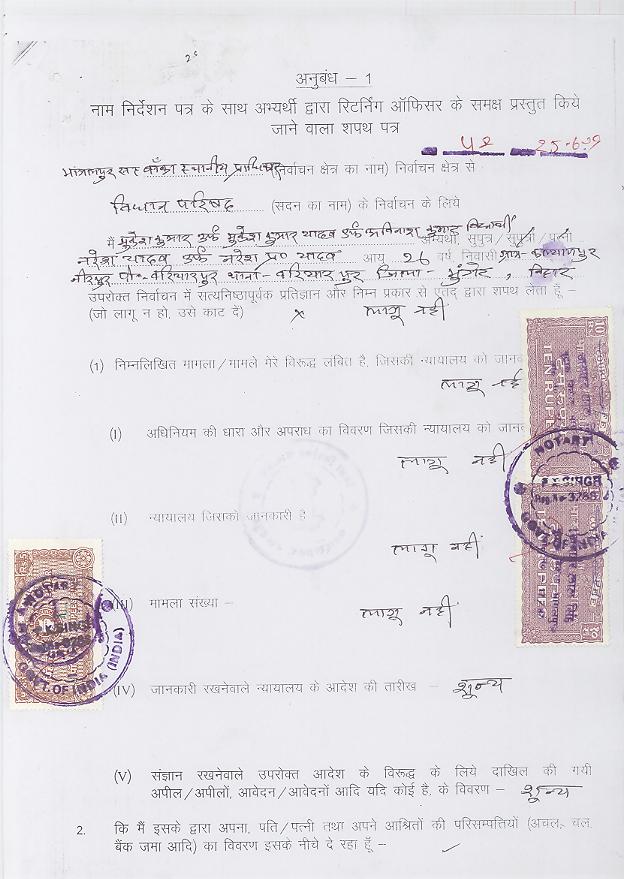 अनुबंध – 1
नाम निर्देशन पत्र के साथ अभ्यर्थी द्वारा रिटर्निंग ऑफिसर के समक्ष प्रस्तुत किये
जाने वाला शपथ पत्र
(निर्वाचन क्षेत्र का नाम) निर्वाचन क्षेत्र से
विधान परिषद (सदन का नाम) के निर्वाचन के लिये
मैं मुकेश कुमार उर्फ मुकेश कुमार यादव उर्फ अविनाश कुमार विद्यार्थी अभ्यर्थी, सुपुत्र/सुपुत्री/पत्नी
नरेश यादव उर्फ नरेश प्र० यादव आयु 26 वर्ष निवासी ग्राम- कल्याणपुर
पो०- बरियारपुर थाना- बरियारपुर जिला- मुंगेर, बिहार
उपरोक्त निर्वाचन में सत्यनिष्ठापूर्वक प्रतिज्ञान और निम्न प्रकार से एतद् द्वारा शपथ लेता हूँ –
(जो लागू न हो, उसे काट दें) × लागू नहीं
(1) निम्नलिखित मामला/मामले मेरे विरूद्ध लंबित है, जिसकी न्यायालय को
लागू नहीं
(I) अधिनियम की धारा और अपराध का विवरण जिसकी न्यायालय को
लागू नहीं
(II) न्यायालय जिसको जानकारी है
लागू नहीं
(III) मामला संख्या –
लागू नहीं
(IV) जानकारी रखनेवाले न्यायालय के आदेश की तारीख – शून्य
(V) संज्ञान रखनेवाले उपरोक्त आदेश के विरूद्ध के लिये दाखिल की गयी
अपील/अपीलों, आवेदन/आवेदनों आदि यदि कोई है, के विवरण – शून्य
2. कि मैं इसके द्वारा अपना, पति/पत्नी तथा अपने आश्रितों की परिसम्पत्तियों (अचल, चल,
बैंक जमा आदि) का विवरण इसके नीचे दे रहा हूँ –
NOTARY
GOVT. OF INDIA (INDIA)
TEN RUPEES
NOTARY
GOVT. OF INDIA